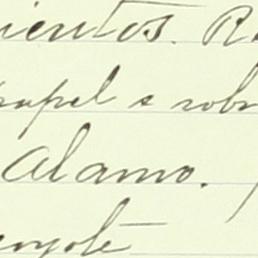 ientos. R
papel e sobr
Alamo.
oyote